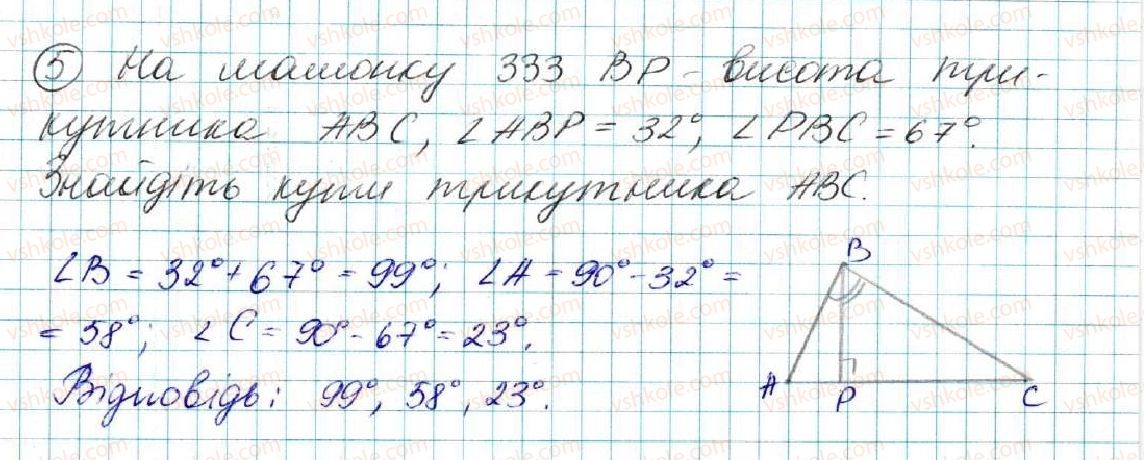 5 На малюнку 333 BP - висота три-
кутника ABC, ∠ABP = 32°, ∠PBC = 67°.
Знайдіть кути трикутника ABC.
∠B = 32° + 67° = 99°; ∠A = 90° - 32° =
= 58°; ∠C = 90° - 67° = 23°.
Відповідь: 99°, 58°, 23°.
B
A P C
vshkole.com